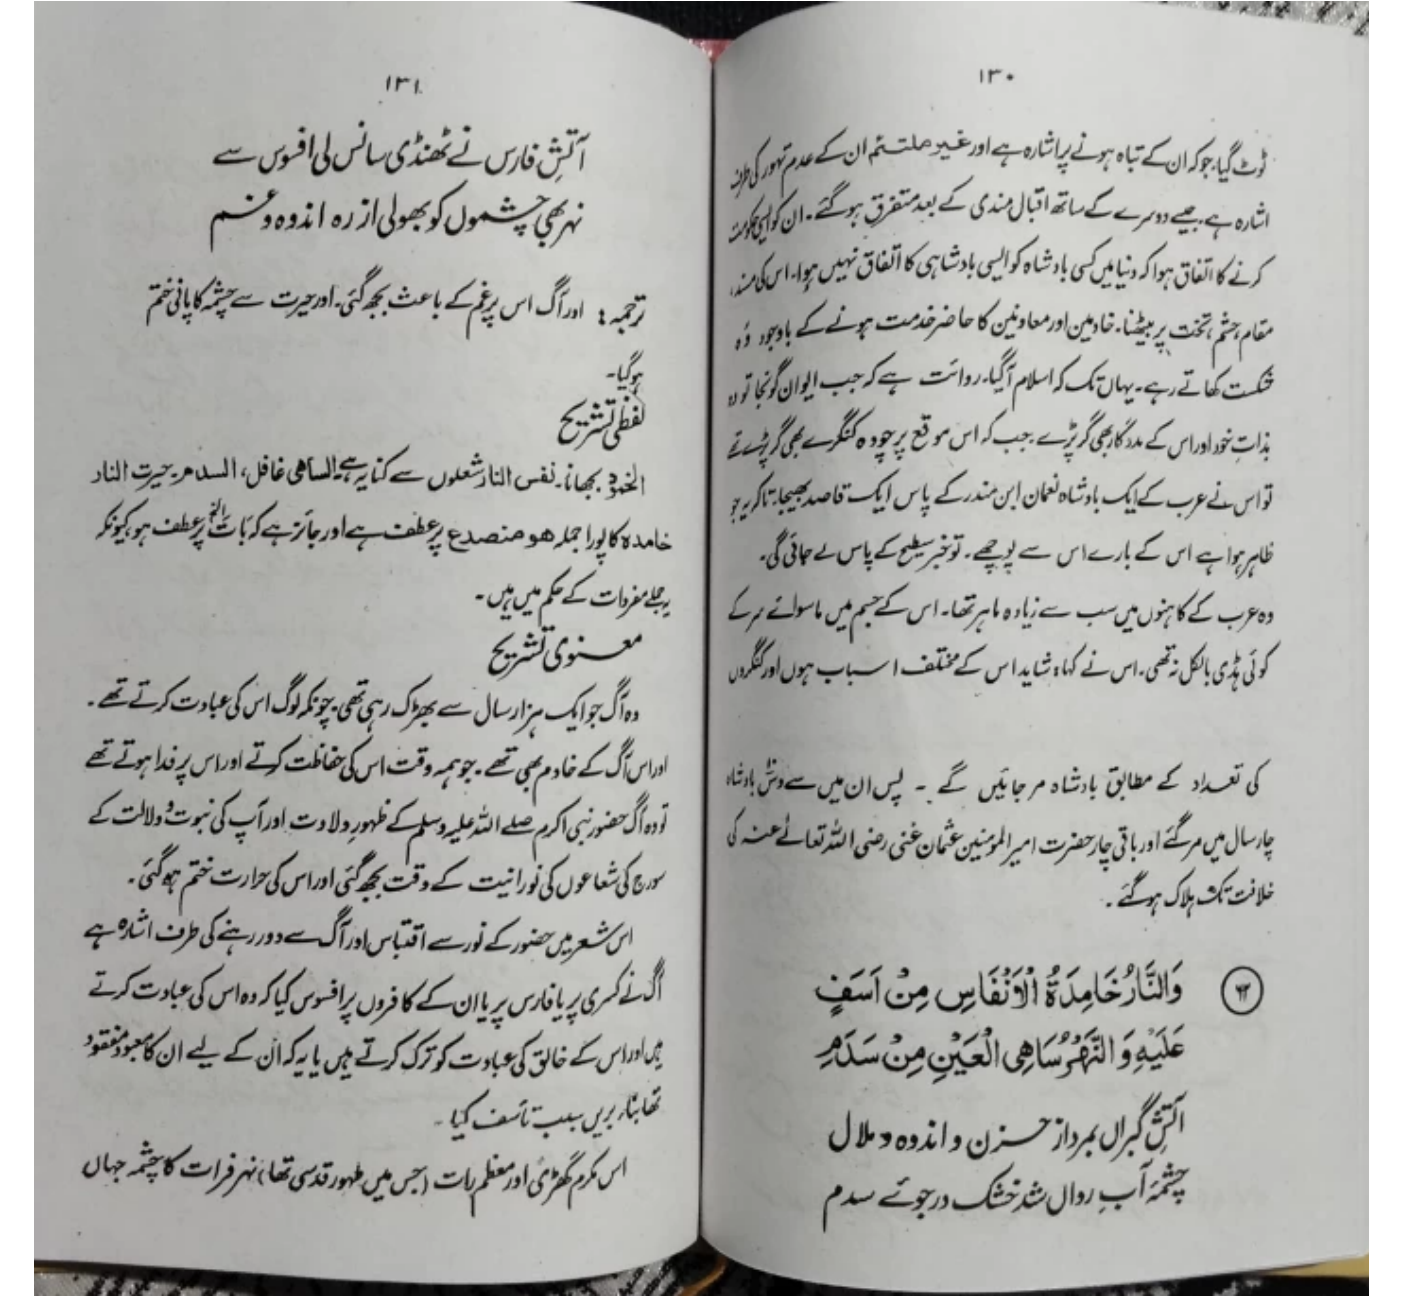 ۱۳۰
ٹوٹ گیا۔ جو کہ ان کے تباہ ہونے پر اشارہ ہے اور غیر ملتئم ان کے عدم تہور کی طرف
اشارہ ہے۔ جیسے دوسرے کے ساتھ اقبال مندی کے بعد متفرق ہو گئے۔ ان کو ایسی حکومت
کرنے کا اتفاق ہوا کہ دنیا میں کسی بادشاہ کو ایسی بادشاہی کا اتفاق نہیں ہوا۔ اس کی مسند،
مقام، حشم، تخت پر بیٹھنا۔ خادمین اور معاونین کا حاضر خدمت ہونے کے باوجود وُہ
شکست کھاتے رہے۔ یہاں تک کہ اسلام آگیا۔ روائت ہے کہ جب ایوان گونجا تو وہ
بذاتِ خود اور اس کے مددگار بھی گر پڑے۔ جب کہ اس موقع پر چودہ کنگرے بھی گر پڑے تھے
تو اس نے عرب کے ایک بادشاہ نعمان ابن منذر کے پاس ایک قاصد بھیجا۔ تاکہ یہ جو
ظاہر ہوا ہے اس کے بارے اس سے پوچھے۔ تو خبر سطیح کے پاس لے جائی گی۔
وہ عرب کے کاہنوں میں سب سے زیادہ ماہر تھا۔ اس کے جسم میں ماسوائے سر کے
کوئی ہڈی بالکل نہ تھی۔ اس نے کہا، شاید اس کے مختلف اسباب ہوں اور کنگروں
کی تعداد کے مطابق بادشاہ مر جائیں گے ۔ پس ان میں سے دس بادشاہ
چار سال میں مر گئے اور باقی چار حضرت امیر المومنین عثمان غنی رضی اللہ تعالےٰ عنہ کی
خلافت تک ہلاک ہو گئے ۔
وَالنَّارُ خَامِدَةُ الْاَنْفَاسِ مِنْ اَسَفٍ
عَلَيْهِ وَالنَّهْرُ سَاهِي الْعَيْنِ مِنْ سَدَمِ
آتشِ گبراں بمرد از حزن و اندوہ و ملال
چشمۂ آبِ رواں شد خشک در جوئے سدم
۱۳۱
آتشِ فارس نے ٹھنڈی سانس لی افسوس سے
نہر بھی چشموں کو بھولی از رہ اندوہ و غم
ترجمہ : اور آگ اس پر غم کے باعث بجھ گئی۔ اور حیرت سے چشمہ کا پانی ختم
ہو گیا۔
لفظی تشریح
الخمود بجھانا۔ نفس النار شعلوں سے کنایہ ہے۔ الساھی غافل، السدم۔ حیرت النار
خامدہ کا پورا جملہ ھو منصدع پر عطف ہے اور جائز ہے کہ بات الخ پر عطف ہو، کیونکہ
یہ جملے مفردات کے حکم میں ہیں۔
معنوی تشریح
وہ آگ جو ایک ہزار سال سے بھڑک رہی تھی۔ چونکہ لوگ اس کی عبادت کرتے تھے۔
اور اس آگ کے خادم بھی تھے۔ جو ہمہ وقت اس کی حفاظت کرتے اور اس پر فدا ہوتے تھے
تو وہ آگ حضور نبی اکرم صلے اللہ علیہ وسلم کے ظہورِ ولادت اور آپ کی نبوت و ولائت کے
سورج کی شعاعوں کی نورانیت کے وقت بجھ گئی اور اس کی حرارت ختم ہو گئی۔
اس شعر میں حضور کے نور سے اقتباس اور آگ سے دور رہنے کی طرف اشارہ ہے
آگ نے کسریٰ پر یا فارس پر یا ان کے کافروں پر افسوس کیا کہ وہ اس کی عبادت کرتے
ہیں اور اس کے خالق کی عبادت کو ترک کرتے ہیں یا یہ کہ ان کے لیے ان کا معبود مفقود
تھا بنا بریں سبب تأسف کیا۔
اس مکرم گھڑی اور معظم رات (جس میں ظہور قدسی تھا) نہر فرات کا چشمہ جہاں